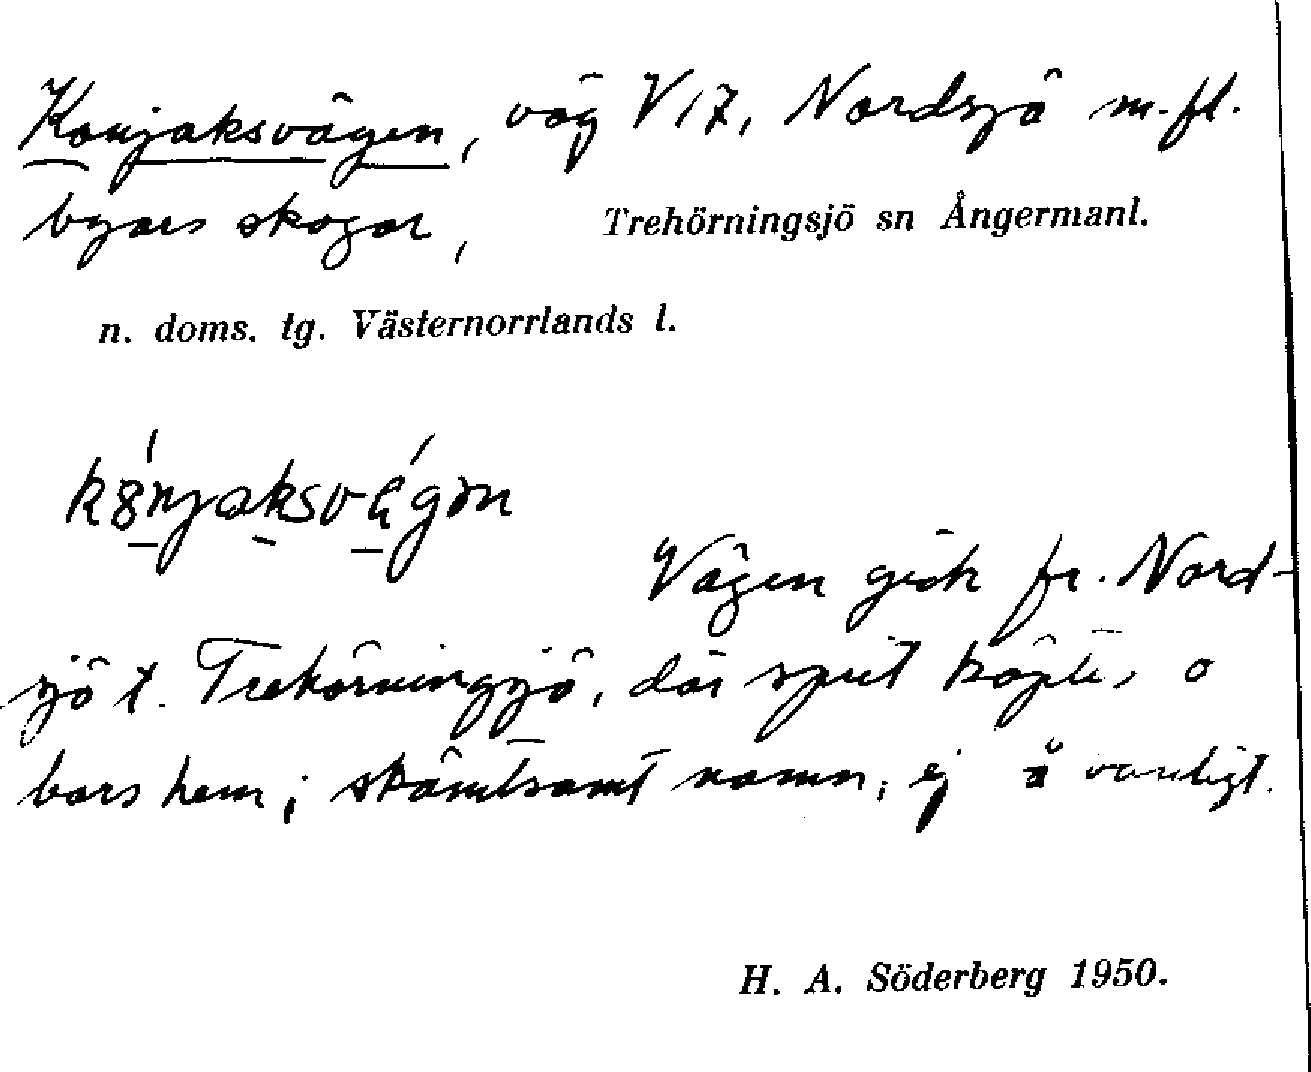 Konjaksvägen, väg V 17, Nordsjö m. fl.
byars skogar, Trehörningsjö sn Ångermanl.
n. doms. tg. Västernorrlands l.
Vägen gick fr. Nord-
sjö t. Trehörningsjö, där sprit köptes o
bars hem; skämtsamt namn; ej å vanligt.
H. A. Söderberg 1950.